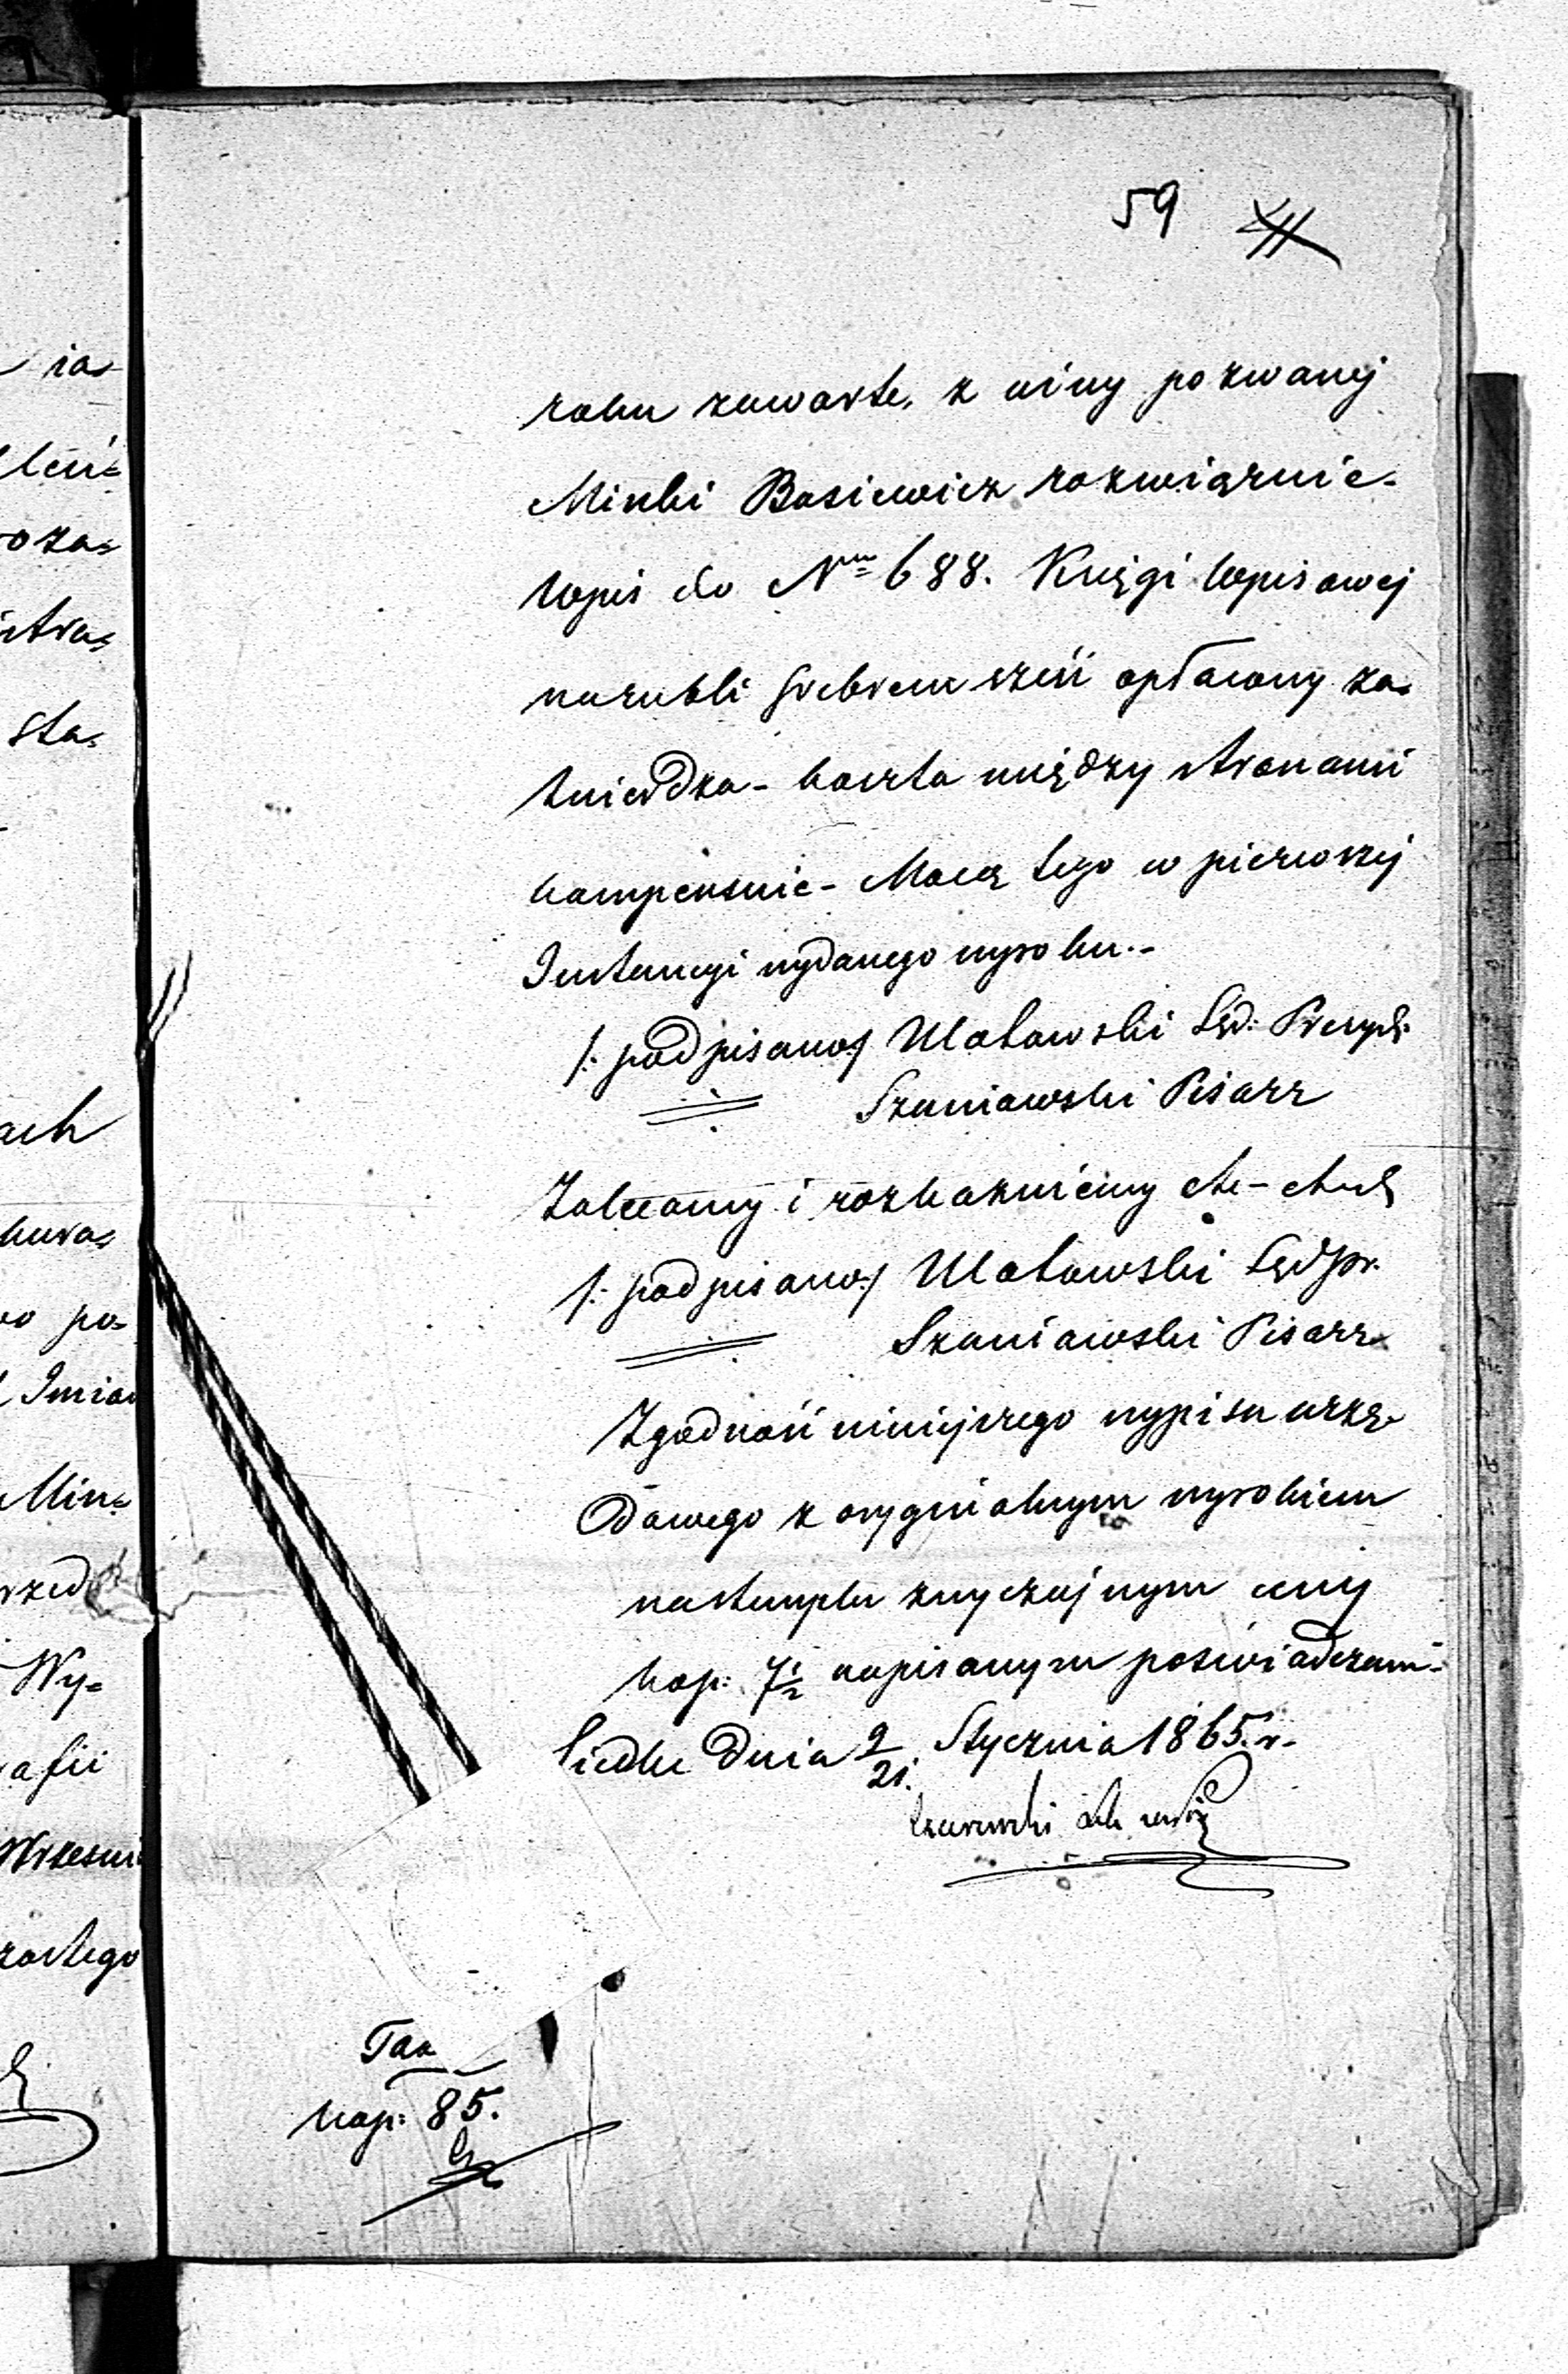 59
roku zawarte, z winy pozwanej
Minki Basiewicz rozwiązuie-
wpis do Nru 688. Księgi wpisowej
na rubli srebrem sześć opłacony za-
twierdza - koszta między stronami
kompensuie - Mocą tego w pierwszej
Instancyi wydanego wyroku.-
/: podpisano :/ Ulatowski Sęd: Prezyd:
Szaniawski Pisarz
Zalecamy i rozkazuiemy etc - etc
/: podpisano :/ Ulatowski Sęd Pr.
Szaniawski Pisarz
Zgodność niniejszego wypisu urzę-
dowego z oryginalnym wyrokiem
na stemplu zwyczajnym ceny
kop: 7½ napisanym poświadczam-
Siedlce dnia 9/21. Stycznia 1865. r.
Tax
kop: 85.
ia-
leń=
oza-
stra-
sta-
ach
kura-
wo po-
Imia
Min=
rzed
Wy-
afii
Wrześni
szóstego